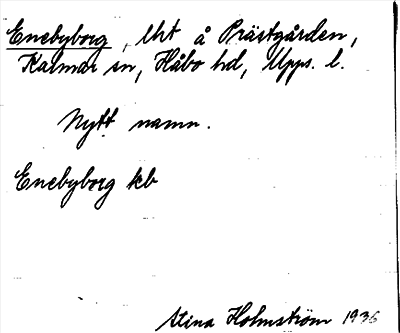 Enebyborg, lht å Prästgården,
Kalmar sn, Håbo hd, Upps. l.
Nytt namn.
Enebyborg kb
Stina Holmström 1936